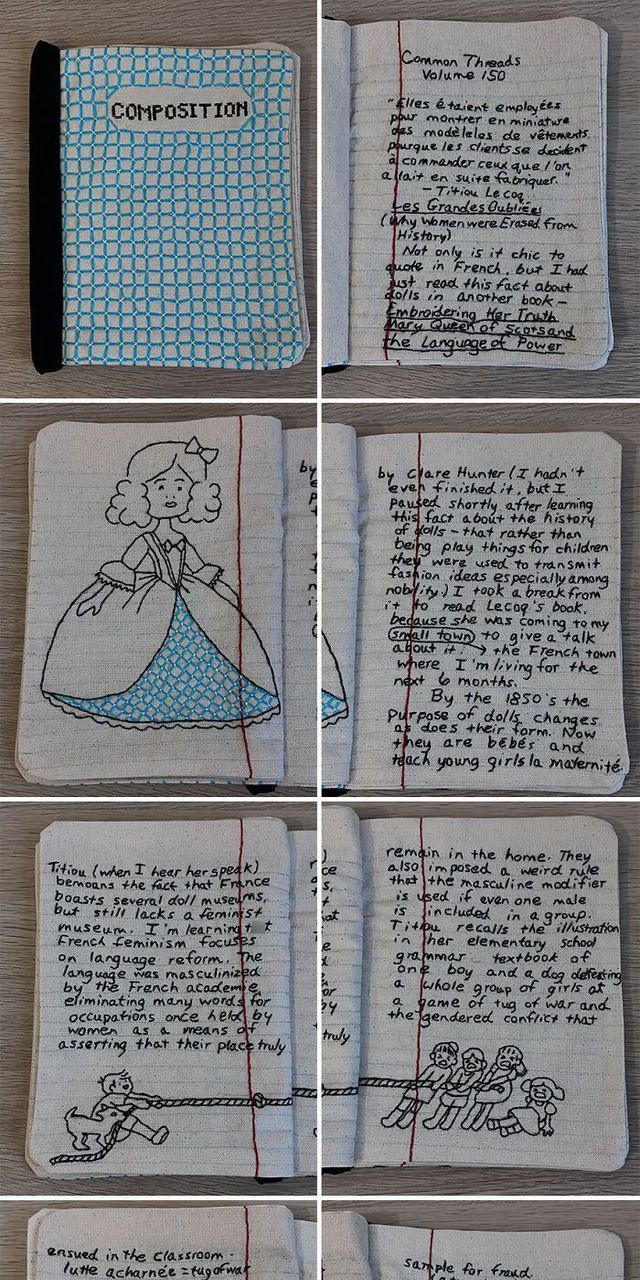 COMPOSITION
Common Threads
Volume 150
"Elles étaient employées
pour montrer en miniature
des modèleles de vêtements
pourque les clients se decident
à commander ceux que l'on
allait en suite fabriquer."
- Titiou Lecoq
Les Grandes Oubliées
(Why Women were Erased from
History)
Not only is it chic to
quote in French, but I had
just read this fact about
dolls in another book -
Embroidering Her Truth
Mary Queen of Scots and
the Language of Power
by Clare Hunter (I hadn't
even finished it, but I
paused shortly after learning
this fact about the history
of dolls - that rather than
being play things for children
they were used to transmit
fashion ideas especially among
nobility.) I took a break from
it to read Lecoq's book,
because she was coming to my
small town to give a talk
about it. → the French town
where I'm living for the
next 6 months.
By the 1850's the
purpose of dolls changes
as does their form. Now
they are bébés and
teach young girls la maternité.
Titiou (when I hear her speak)
bemoans the fact that France
boasts several doll museums,
but still lacks a feminist
museum. I'm learning t
French feminism focuses
on language reform. The
language was masculinized
by the French academie
eliminating many words for
occupations once held by
women as a means of
asserting that their place truly
remain in the home. They
also imposed a weird rule
that the masculine modifier
is used if even one male
is included in a group.
Titiou recalls the illustration
in her elementary school
grammar textbook of
one boy and a dog defeating
a whole group of girls at
a game of tug of war and
the gendered conflict that
ensued in the classroom.
lutte acharnée = tug of war
sample for fraud.